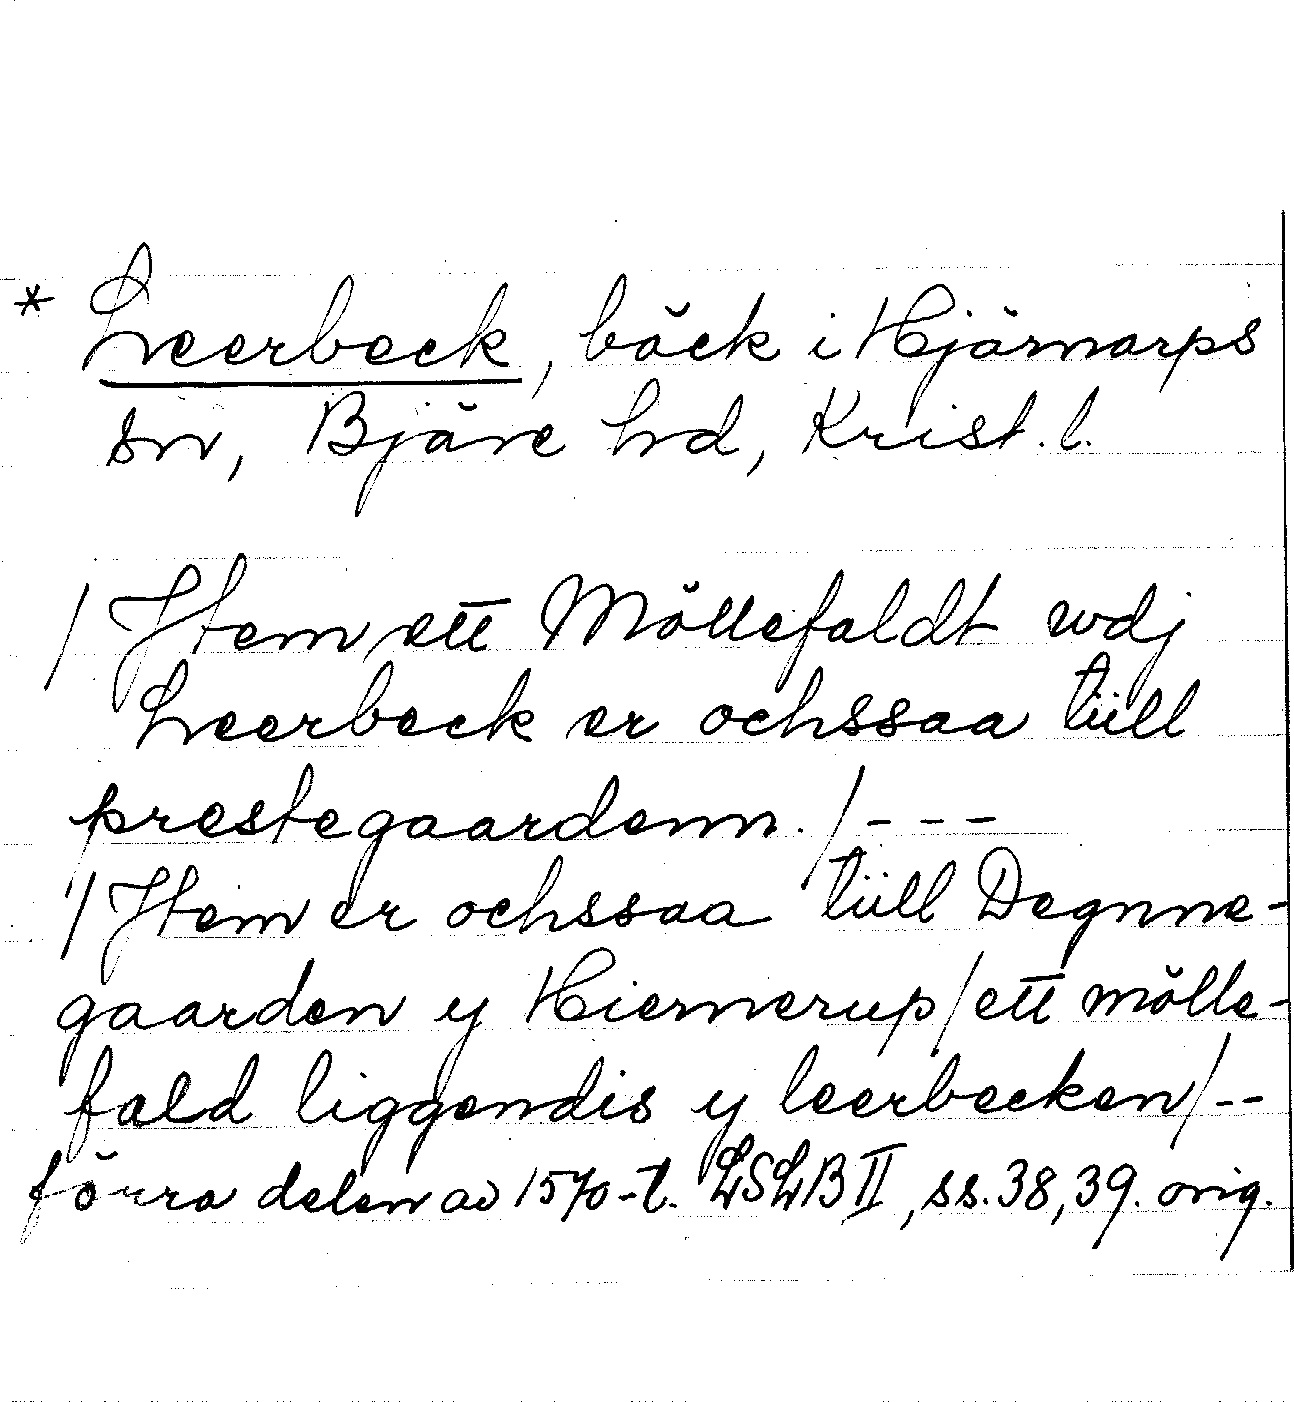 * Leerbeck, bäck i Hjärnarps
sn, Bjäre hd, Krist. l.
/ Item ett Möllefaldt wdj
Leerbeck er ochssaa tüll
prestegaardenn. / - - -
/ Item er ochssaa tüll Degnne-
gaarden y Hiernerup / ett mölle-
fald liggendis y leerbecken / - -
förra delen av 1570-t. LSLB II, ss. 38, 39. orig.